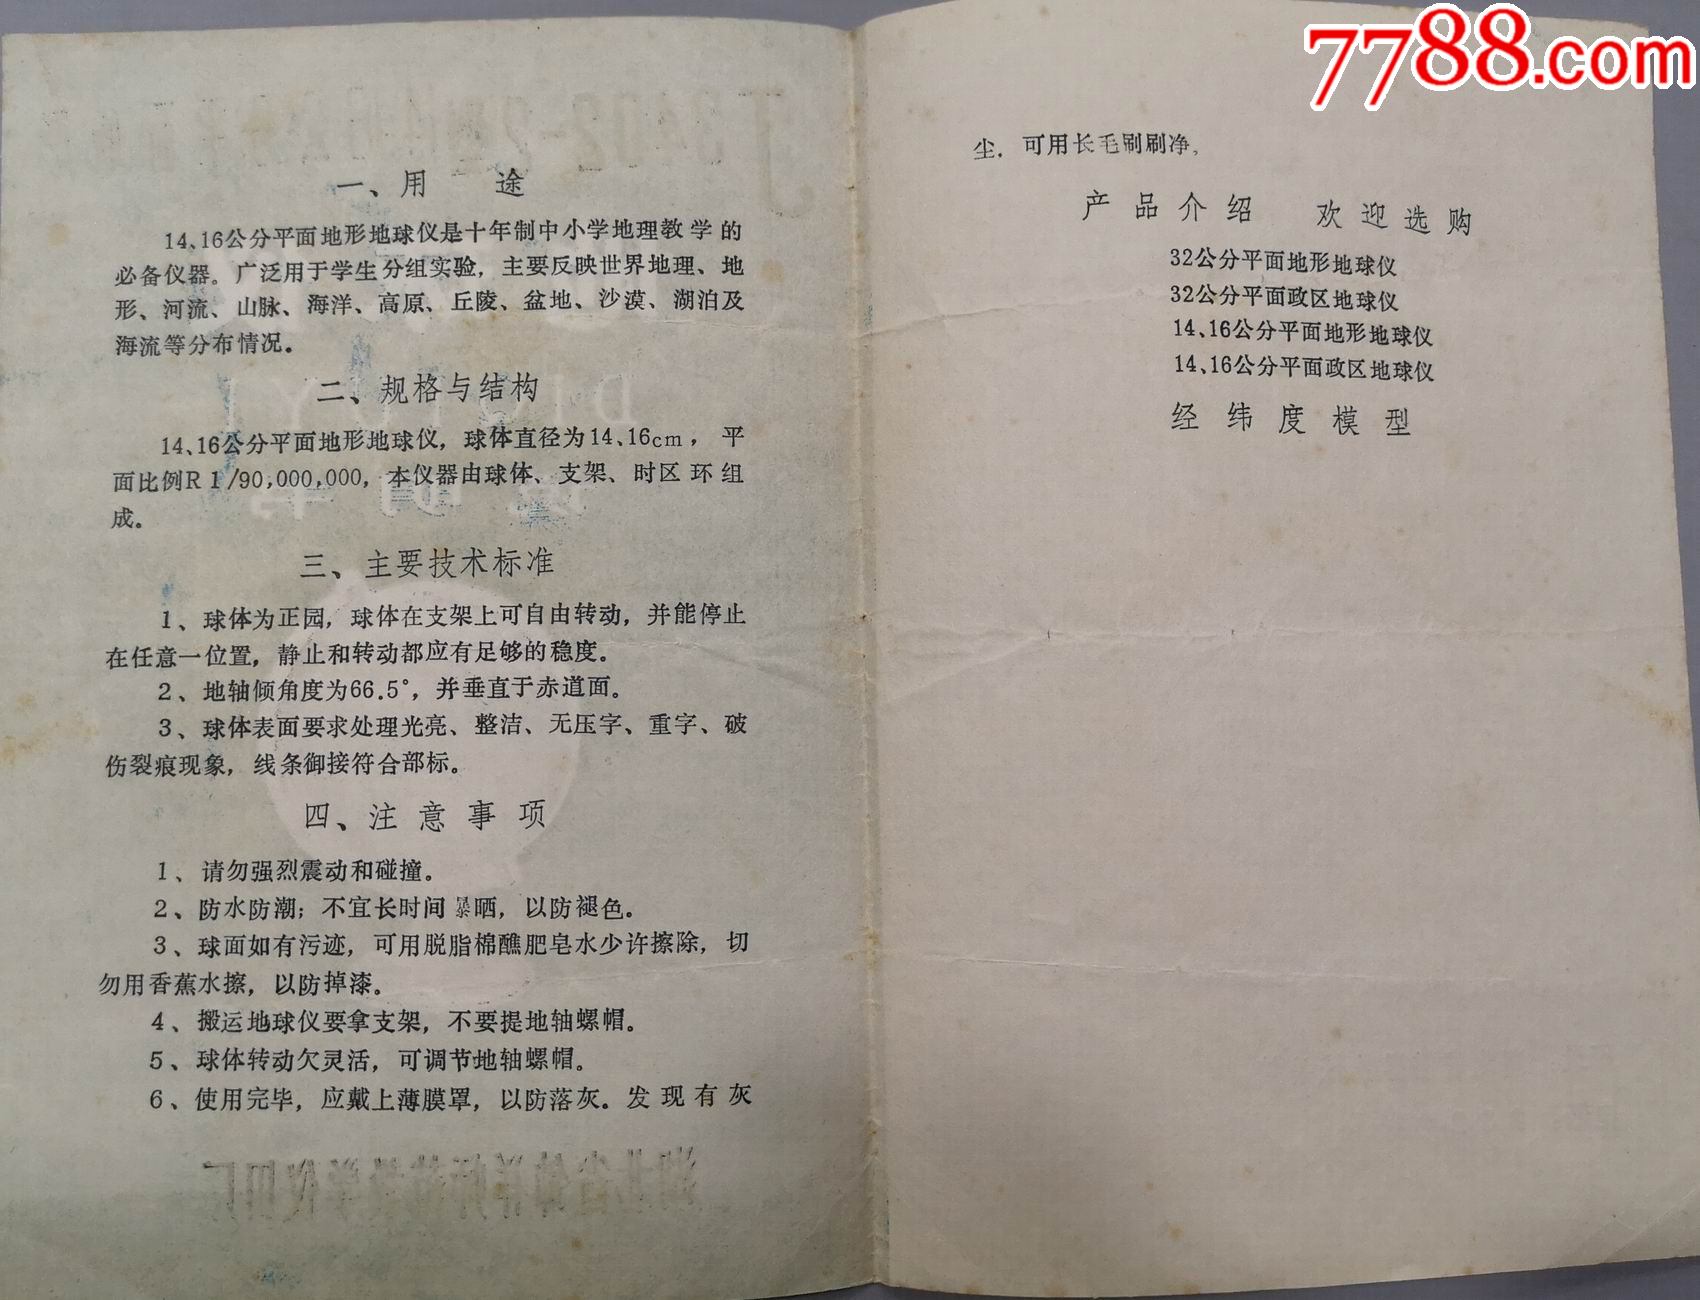 一、用 途
14、16公分平面地形地球仪是十年制中小学地理教学的
必备仪器。广泛用于学生分组实验，主要反映世界地理、地
形、河流、山脉、海洋、高原、丘陵、盆地、沙漠、湖泊及
海流等分布情况。
二、规格与结构
14、16公分平面地形地球仪，球体直径为14、16cm，平
面比例R1/90,000,000，本仪器由球体、支架、时区环组
成。
三、主要技术标准
1、球体为正园，球体在支架上可自由转动，并能停止
在任意一位置，静止和转动都应有足够的稳度。
2、地轴倾角度为66.5°，并垂直于赤道面。
3、球体表面要求处理光亮、整洁、无压字、重字、破
伤裂痕现象，线条御接符合部标。
四、注意事项
1、请勿强烈震动和碰撞。
2、防水防潮；不宜长时间暴晒，以防褪色。
3、球面如有污迹，可用脱脂棉醮肥皂水少许擦除，切
勿用香蕉水擦，以防掉漆。
4、搬运地球仪要拿支架，不要提地轴螺帽。
5、球体转动欠灵活，可调节地轴螺帽。
6、使用完毕，应戴上薄膜罩，以防落灰。发现有灰
7788.com
尘．可用长毛刷刷净。
产品介绍 欢迎选购
32公分平面地形地球仪
32公分平面政区地球仪
14、16公分平面地形地球仪
14、16公分平面政区地球仪
经纬度模型